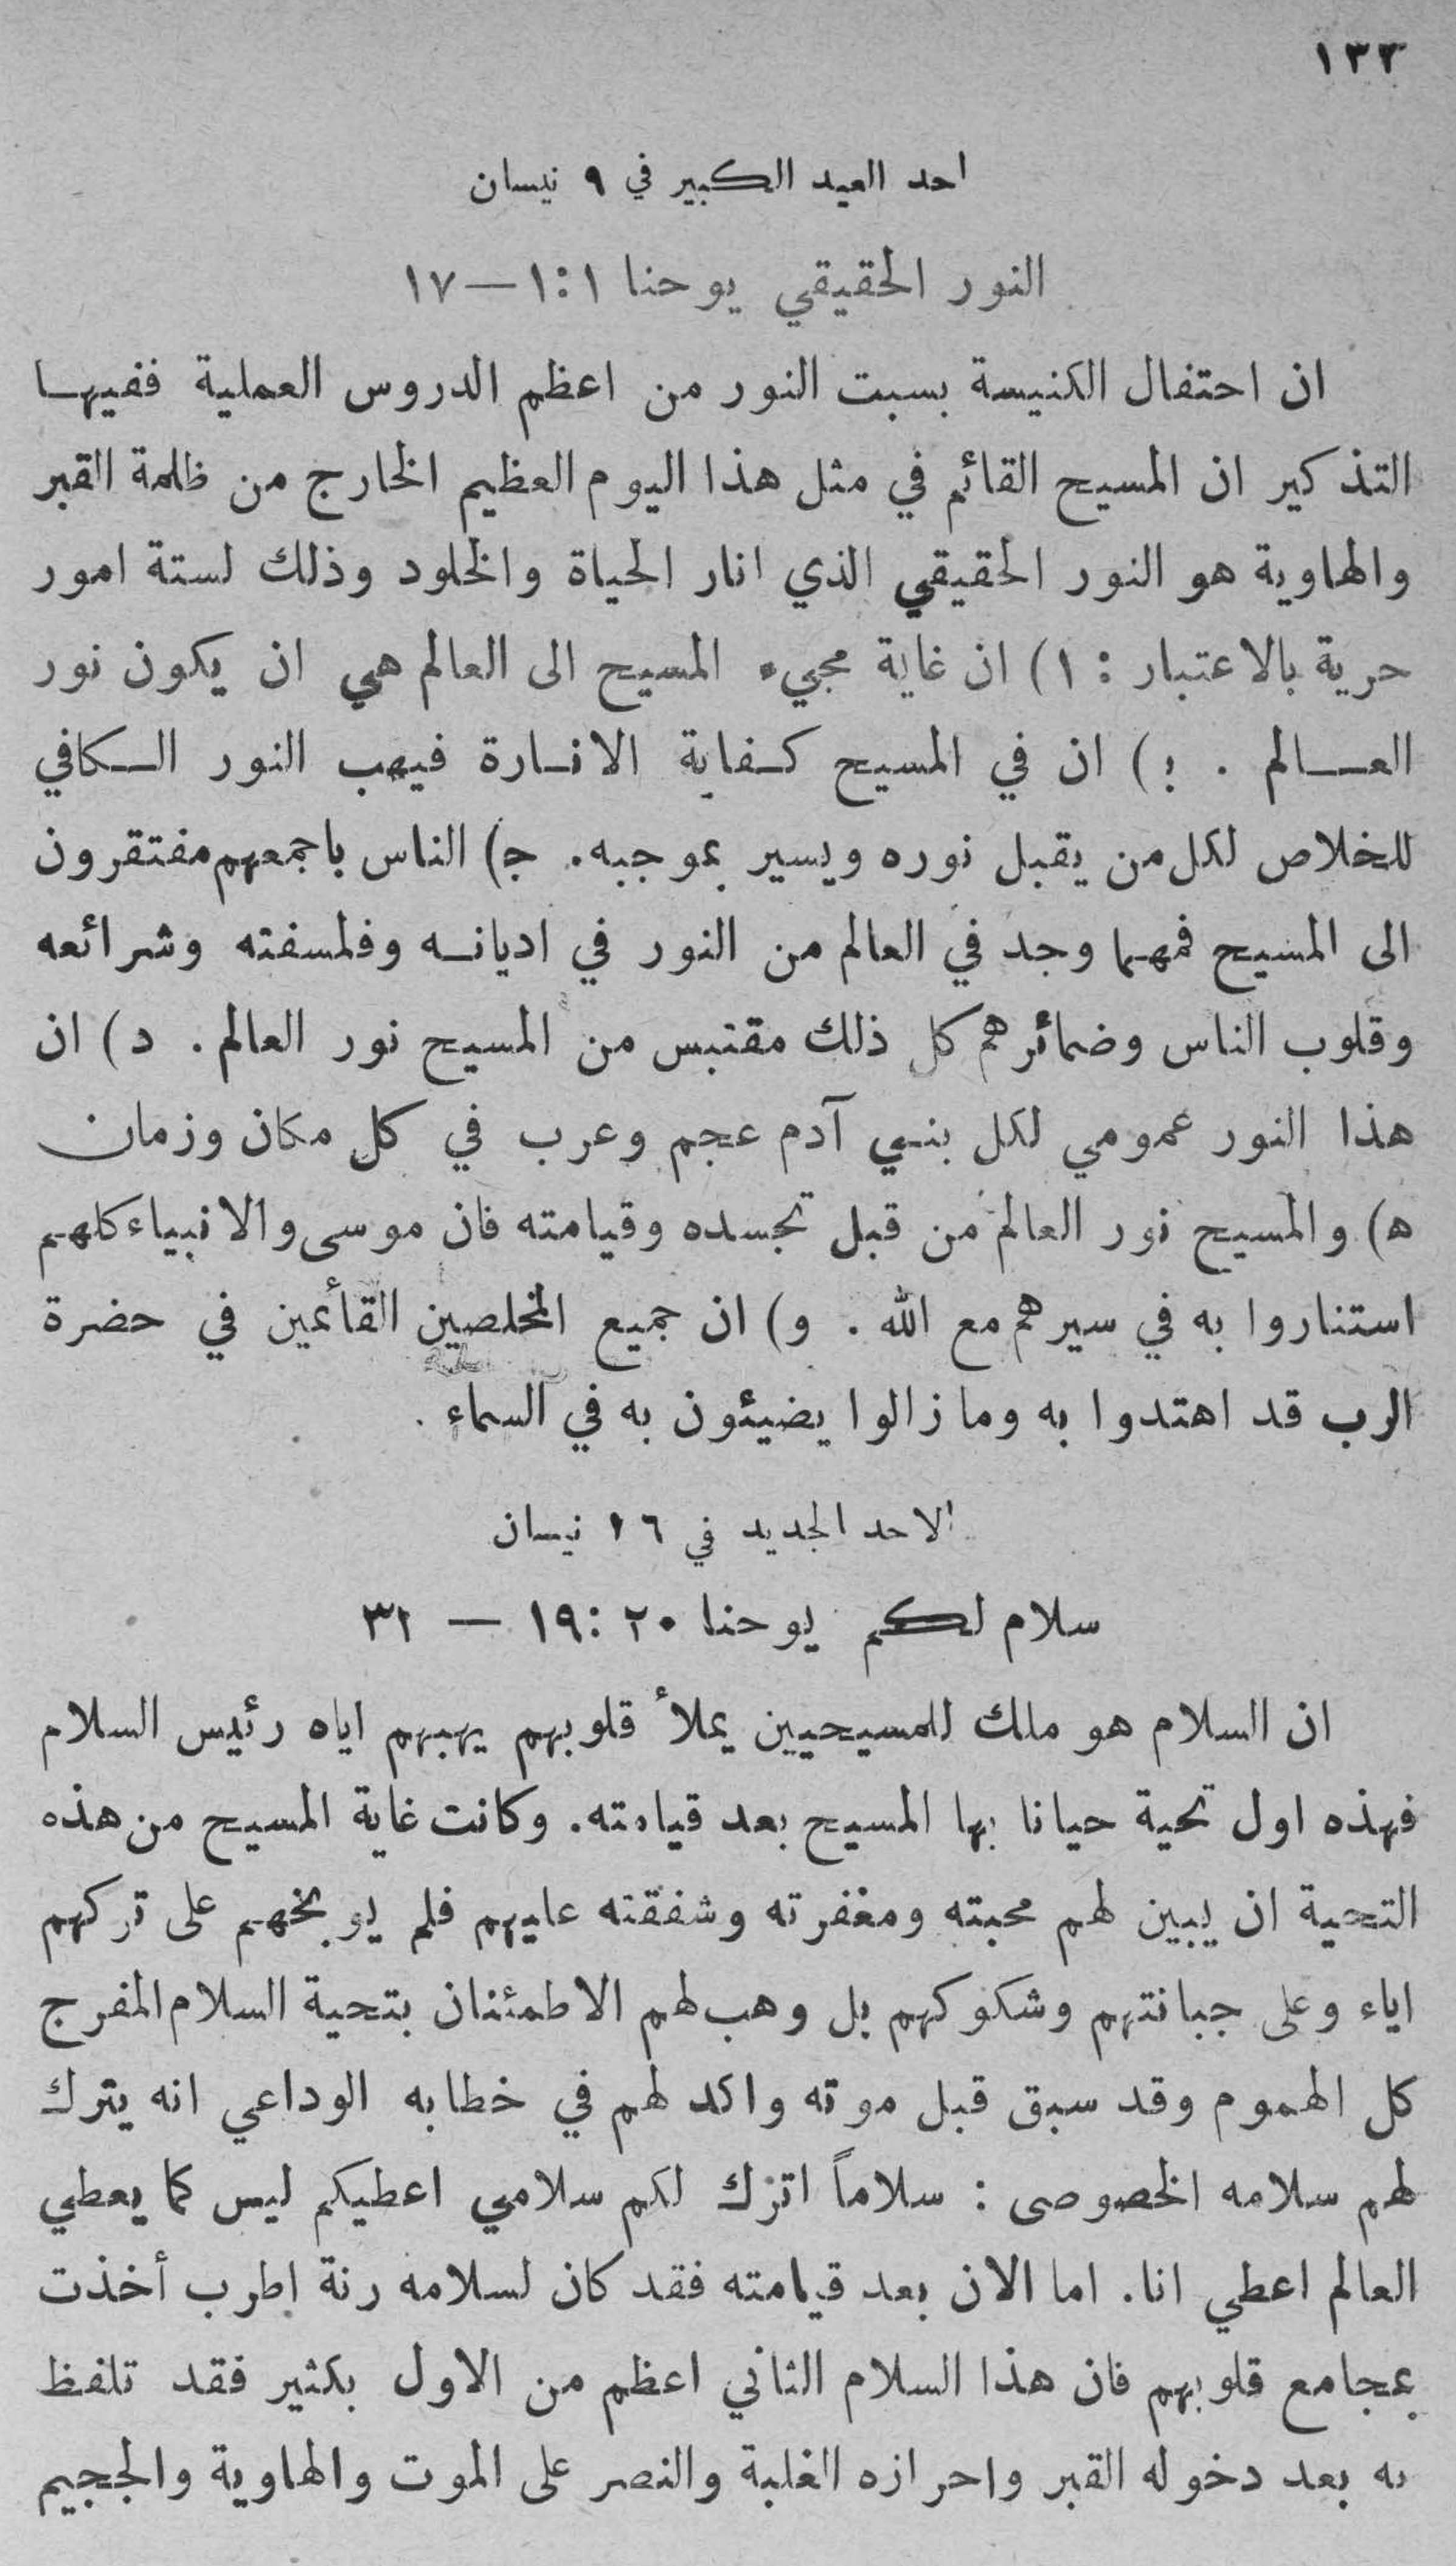 ١٣٢
احد العيد الكبير في ٩ نيسان
النور الحقيقي يوحنا ١:١—١٧
ان احتفال الكنيسة بسبت النور من اعظم الدروس العملية ففيها
التذكير ان المسيح القائم في مثل هذا اليوم العظيم الخارج من ظلمة القبر
والهاوية هو النور الحقيقي الذي انار الحياة والخلود وذلك لستة امور
حرية بالاعتبار : ١) ان غاية مجيء المسيح الى العالم هي ان يكون نور
العالم . ب) ان في المسيح كفاية الانارة فيهب النور الكافي
للخلاص لكل من يقبل نوره ويسير بموجبه. ج) الناس باجمعهم مفتقرون
الى المسيح فمهما وجد في العالم من النور في اديانه وفلسفته وشرائعه
وقلوب الناس وضمائرهم كل ذلك مقتبس من المسيح نور العالم . د) ان
هذا النور عمومي لكل بني آدم عجم وعرب في كل مكان وزمان
ه) والمسيح نور العالم من قبل تجسده وقيامته فان موسى والانبياء كلهم
استناروا به في سيرهم مع الله . و) ان جميع المخلصين القأئمين في حضرة
الرب قد اهتدوا به وما زالوا يضيئون به في السماء .
الاحد الجديد في ١٦ نيسان
سلام لكم يوحنا ٢٠ :١٩ — ٣١
ان السلام هو ملك للمسيحيين يملأ قلوبهم يهبهم اياه رئيس السلام
فهذه اول تحية حيانا بها المسيح بعد قيامته. وكانت غاية المسيح من هذه
التحية ان يبين لهم محبته ومغفرته وشفقته عليهم فلم يوبخهم على تركهم
اياء وعلى جبانتهم وشكوكهم بل وهب لهم الاطمئنان بتحية السلام المفرج
كل الهموم وقد سبق قبل موته واكد لهم في خطابه الوداعي انه يترك
لهم سلامه الخصوصى : سلاماً اترك لكم سلامي اعطيكم ليس كما يعطي
العالم اعطي انا. اما الان بعد قيامته فقد كان لسلامه رنة اطرب أخذت
بمجامع قلوبهم فان هذا السلام الثاني اعظم من الاول بكثير فقد تلفظ
به بعد دخوله القبر واحرازه الغلبة والنصر على الموت والهاوية والجحيم